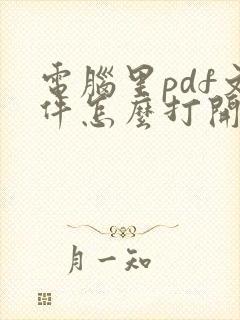 電腦里pdf文
件怎麼打開
月一知